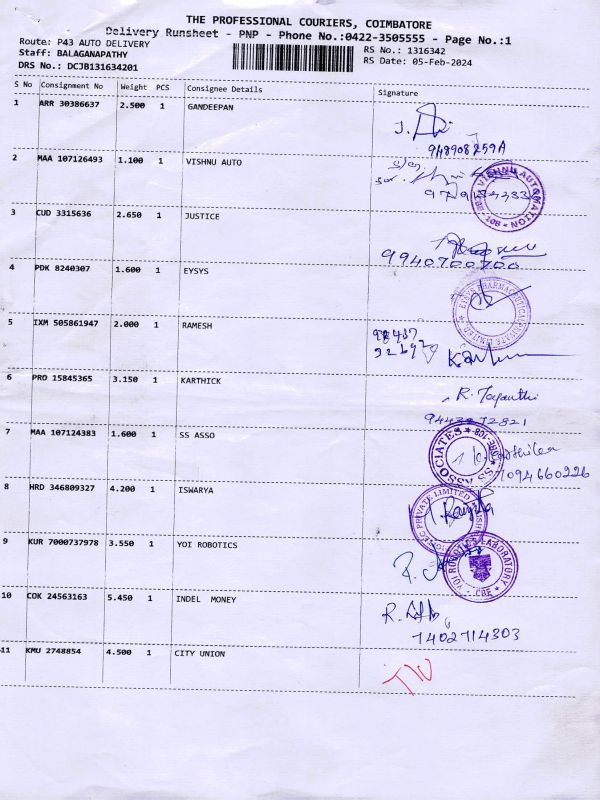 THE PROFESSIONAL COURIERS, COIMBATORE
Delivery Runsheet - PNP - Phone No.:0422-3505555 - Page No.:1
Route: P43 AUTO DELIVERY
RS No.: 1316342
Staff: BALAGANAPATHY
RS Date: 05-Feb-2024
DRS No.: DCJB131634201
S No Consignment No Weight PCS Consignee Details Signature
1 ARR 30386637 2.500 1 GANDEEPAN
2 MAA 107126493 1.100 1 VISHNU AUTO
VISHNU AUTOMATION
3 CUD 3315636 2.650 1 JUSTICE
9940700700
4 PDK 8240307 1.600 1 EYSYS
5 IXM 505861947 2.000 1 RAMESH
6 PRO 15845365 3.150 1 KARTHICK
R. Jayanthi
7 MAA 107124383 1.600 1 SS ASSO
SS ASSOCIATES
7094660226
8 HRD 346809327 4.200 1 ISWARYA
PRIVATE LIMITED
9 KUR 7000737978 3.550 1 YOI ROBOTICS
YOI ROBOTICS LABORATORY
CBE
10 COK 24563163 5.450 1 INDEL MONEY
7402714303
11 KMU 2748854 4.500 1 CITY UNION